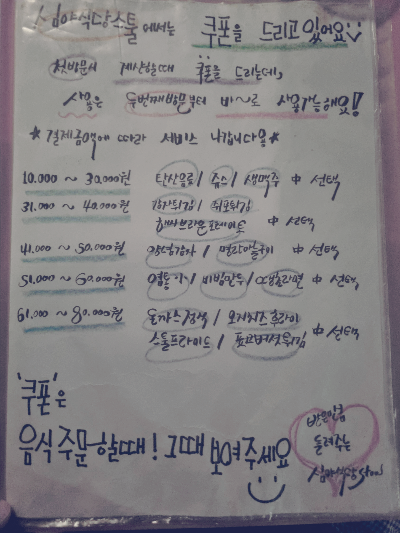 심야식당스툴에서는 쿠폰을 드리고 있어요
첫방문시 계산할때 쿠폰을 드리는데,
사용은 두번째방문부터 바~로 사용가능해요!
*결제금액에 따라 서비스 나갑니다용*
10.000 ~ 30.000원 탄산음료 / 쥬스 / 생맥주 中 선택
31.000 ~ 40.000원 김치튀김 / 쥐포튀김
해쉬브라운포테이토 中 선택
41.000 ~ 50.000원 양념감자 / 명란마늘구이 中 선택
51.000 ~ 60.000원 / 비빔만두 / 라면 中 선택
61.000 ~ 80.000원 돈까스정식 / 모거치즈후라이
스툴프라이드 / 표고버섯튀김 中 선택
'쿠폰'은
음식 주문할때! 그때 보여주세요
받은만큼
돌려주는
심야식당stool